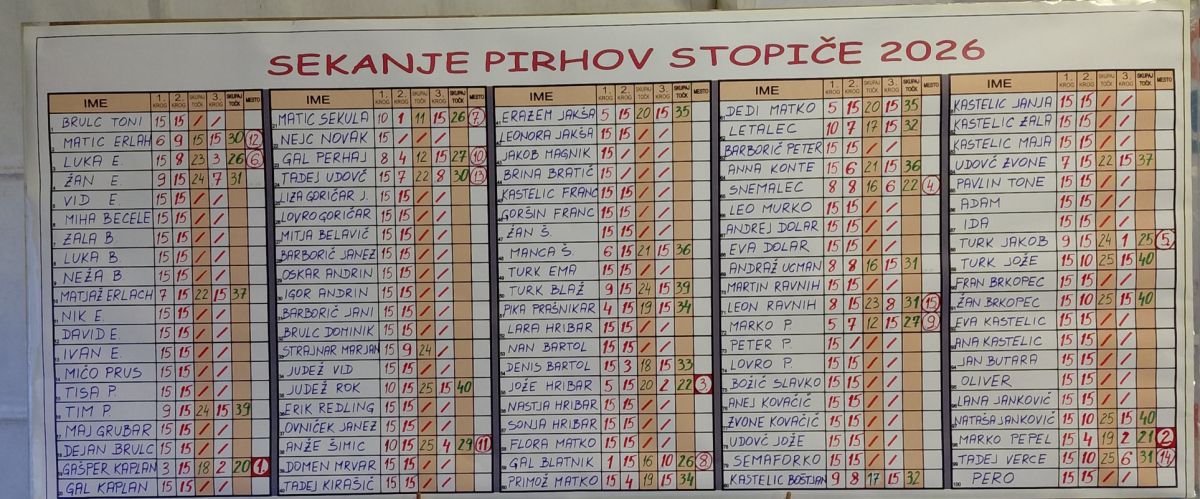 SEKANJE PIRHOV STOPIČE 2026
IME 1. KROG 2. KROG SKUPAJ TOČK 3. KROG SKUPAJ TOČK MESTO
BRULC TONI 15 15 / /
MATIC ERLAH 6 9 15 15 30 12
LUKA E. 15 8 23 3 26 6
ŽAN E. 9 15 24 7 31
VID E. 15 15 / /
MIHA BECELE 15 15 / /
ŽALA B 15 15 / /
LUKA B 15 15 / /
NEŽA B 15 15 / /
MATJAŽ ERLACH 7 15 22 15 37
NIK E. 15 15 / /
DAVID E 15 15 / /
IVAN E. 15 15 / /
MIČO PRUS 15 15 / /
TISA P. 15 15 / /
TIM P. 9 15 24 15 39
MAJ GRUBAR 15 15 / /
DEJAN BRULC 15 15 / /
GAŠPER KAPLAN 3 15 18 2 20 1
GAL KAPLAN 15 15 / /
IME 1. KROG 2. KROG SKUPAJ TOČK 3. KROG SKUPAJ TOČK MESTO
MATIC SEKULA 10 1 11 15 26 7
NEJC NOVAK 15 / /
GAL PERHAJ 8 4 12 15 27 10
TADEJ UDOVČ 15 7 22 8 30 13
LIZA GORIČAR J. 15 15 / /
LOVRO GORIČAR 15 15 / /
MITJA BELAVIČ 15 15 / /
BARBORIČ JANEZ 15 15 / /
OSKAR ANDRIN 15 15 / /
IGOR ANDRIN 15 15 / /
BARBORIČ JANI 15 15 / /
BRULC DOMINIK 15 15 / /
STRAJNAR MARJAN 15 9 24 /
JUDEŽ VID 15 15 / /
JUDEŽ ROK 10 15 25 15 40
ERIK REDLING 15 15 / /
OVNIČEK JANEZ 15 15 / /
ANŽE ŠIMIC 10 15 25 4 29 11
DOMEN MRVAR 15 15 / /
TADEJ KIRAŠIČ 15 15 / /
IME 1. KROG 2. KROG SKUPAJ TOČK 3. KROG SKUPAJ TOČK MESTO
ERAZEM JAKŠA 5 15 20 15 35
LEONORA JAKŠA 15 15 / /
JAKOB MAGNIK 15 / /
BRINA BRATIČ 15 / /
KASTELIC FRANC 15 15 / /
GORŠIN FRANC 15 15 / /
ŽAN Š. 15 15 / /
MANCA Š. 6 15 21 15 36
TURK EMA 15 15 / /
TURK BLAŽ 9 15 24 15 39
PIKA PRAŠNIKAR 4 15 19 15 34
LARA HRIBAR 15 15 / /
IVAN BARTOL 15 15 / /
DENIS BARTOL 15 3 18 15 33
JOŽE HRIBAR 5 15 20 2 22 3
NASTJA HRIBAR 15 15 / /
SONJA HRIBAR 15 15 / /
FLORA MATKO 15 15 / /
GAL BLATNIK 1 15 16 10 26 8
PRIMOŽ MATKO 15 4 19 15 34
IME 1. KROG 2. KROG SKUPAJ TOČK 3. KROG SKUPAJ TOČK MESTO
DEDI MATKO 5 15 20 15 35
LETALEC 10 7 17 15 32
BARBORIČ PETER 15 15 / /
ANNA KONTE 15 6 21 15 36
SNEMALEC 8 8 16 6 22 4
LEO MURKO 15 15 / /
ANDREJ DOLAR 15 15 / /
EVA DOLAR 15 15 / /
ANDRAŽ UCMAN 8 8 16 15 31
MARTIN RAVNIH 15 15 / /
LEON RAVNIH 8 15 23 8 31 15
MARKO P. 5 7 12 15 27 9
PETER P. 15 15 / /
LOVRO P. 15 15 / /
BOŽIČ SLAVKO 15 15 / /
ANEJ KOVAČIČ 15 15 / /
ZVONE KOVAČIČ 15 15 / /
UDOVČ JOŽE 15 15 / /
SEMAFORKO 15 15 / /
KASTELIC BOŠTJAN 9 8 17 15 32
IME 1. KROG 2. KROG SKUPAJ TOČK 3. KROG SKUPAJ TOČK MESTO
KASTELIC JANJA 15 15 / /
KASTELIC ŽALA 15 15 / /
KASTELIC MAJA 15 15 / /
UDOVČ ZVONE 7 15 22 15 37
PAVLIN TONE 15 15 / /
ADAM 15 15 / /
IDA 15 15 / /
TURK JAKOB 9 15 24 1 25 5
TURK JOŽE 15 10 25 15 40
FRAN BRKOPEC 15 15 / /
ŽAN BRKOPEC 15 10 25 15 40
EVA KASTELIC 15 15 / /
ANA KASTELIC 15 15 / /
JAN BUTARA 15 15 / /
OLIVER 15 15 / /
LANA JANKOVIČ 15 15 / /
NATAŠA JANKOVIČ 15 10 25 15 40
MARKO PEPEL 15 4 19 2 21 2
TADEJ VERCE 15 10 25 6 31 14
PERO 15 15 / /